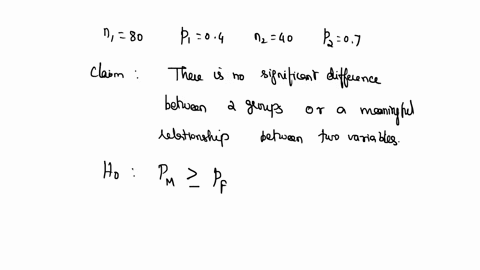 n₁ = 80 p₁ = 0.4 n₂ = 40 p₂ = 0.7
Claim : There is no significant difference
between 2 groups or a meaningful
relationship between two variables.
H₀ : P_M ≥ P_F